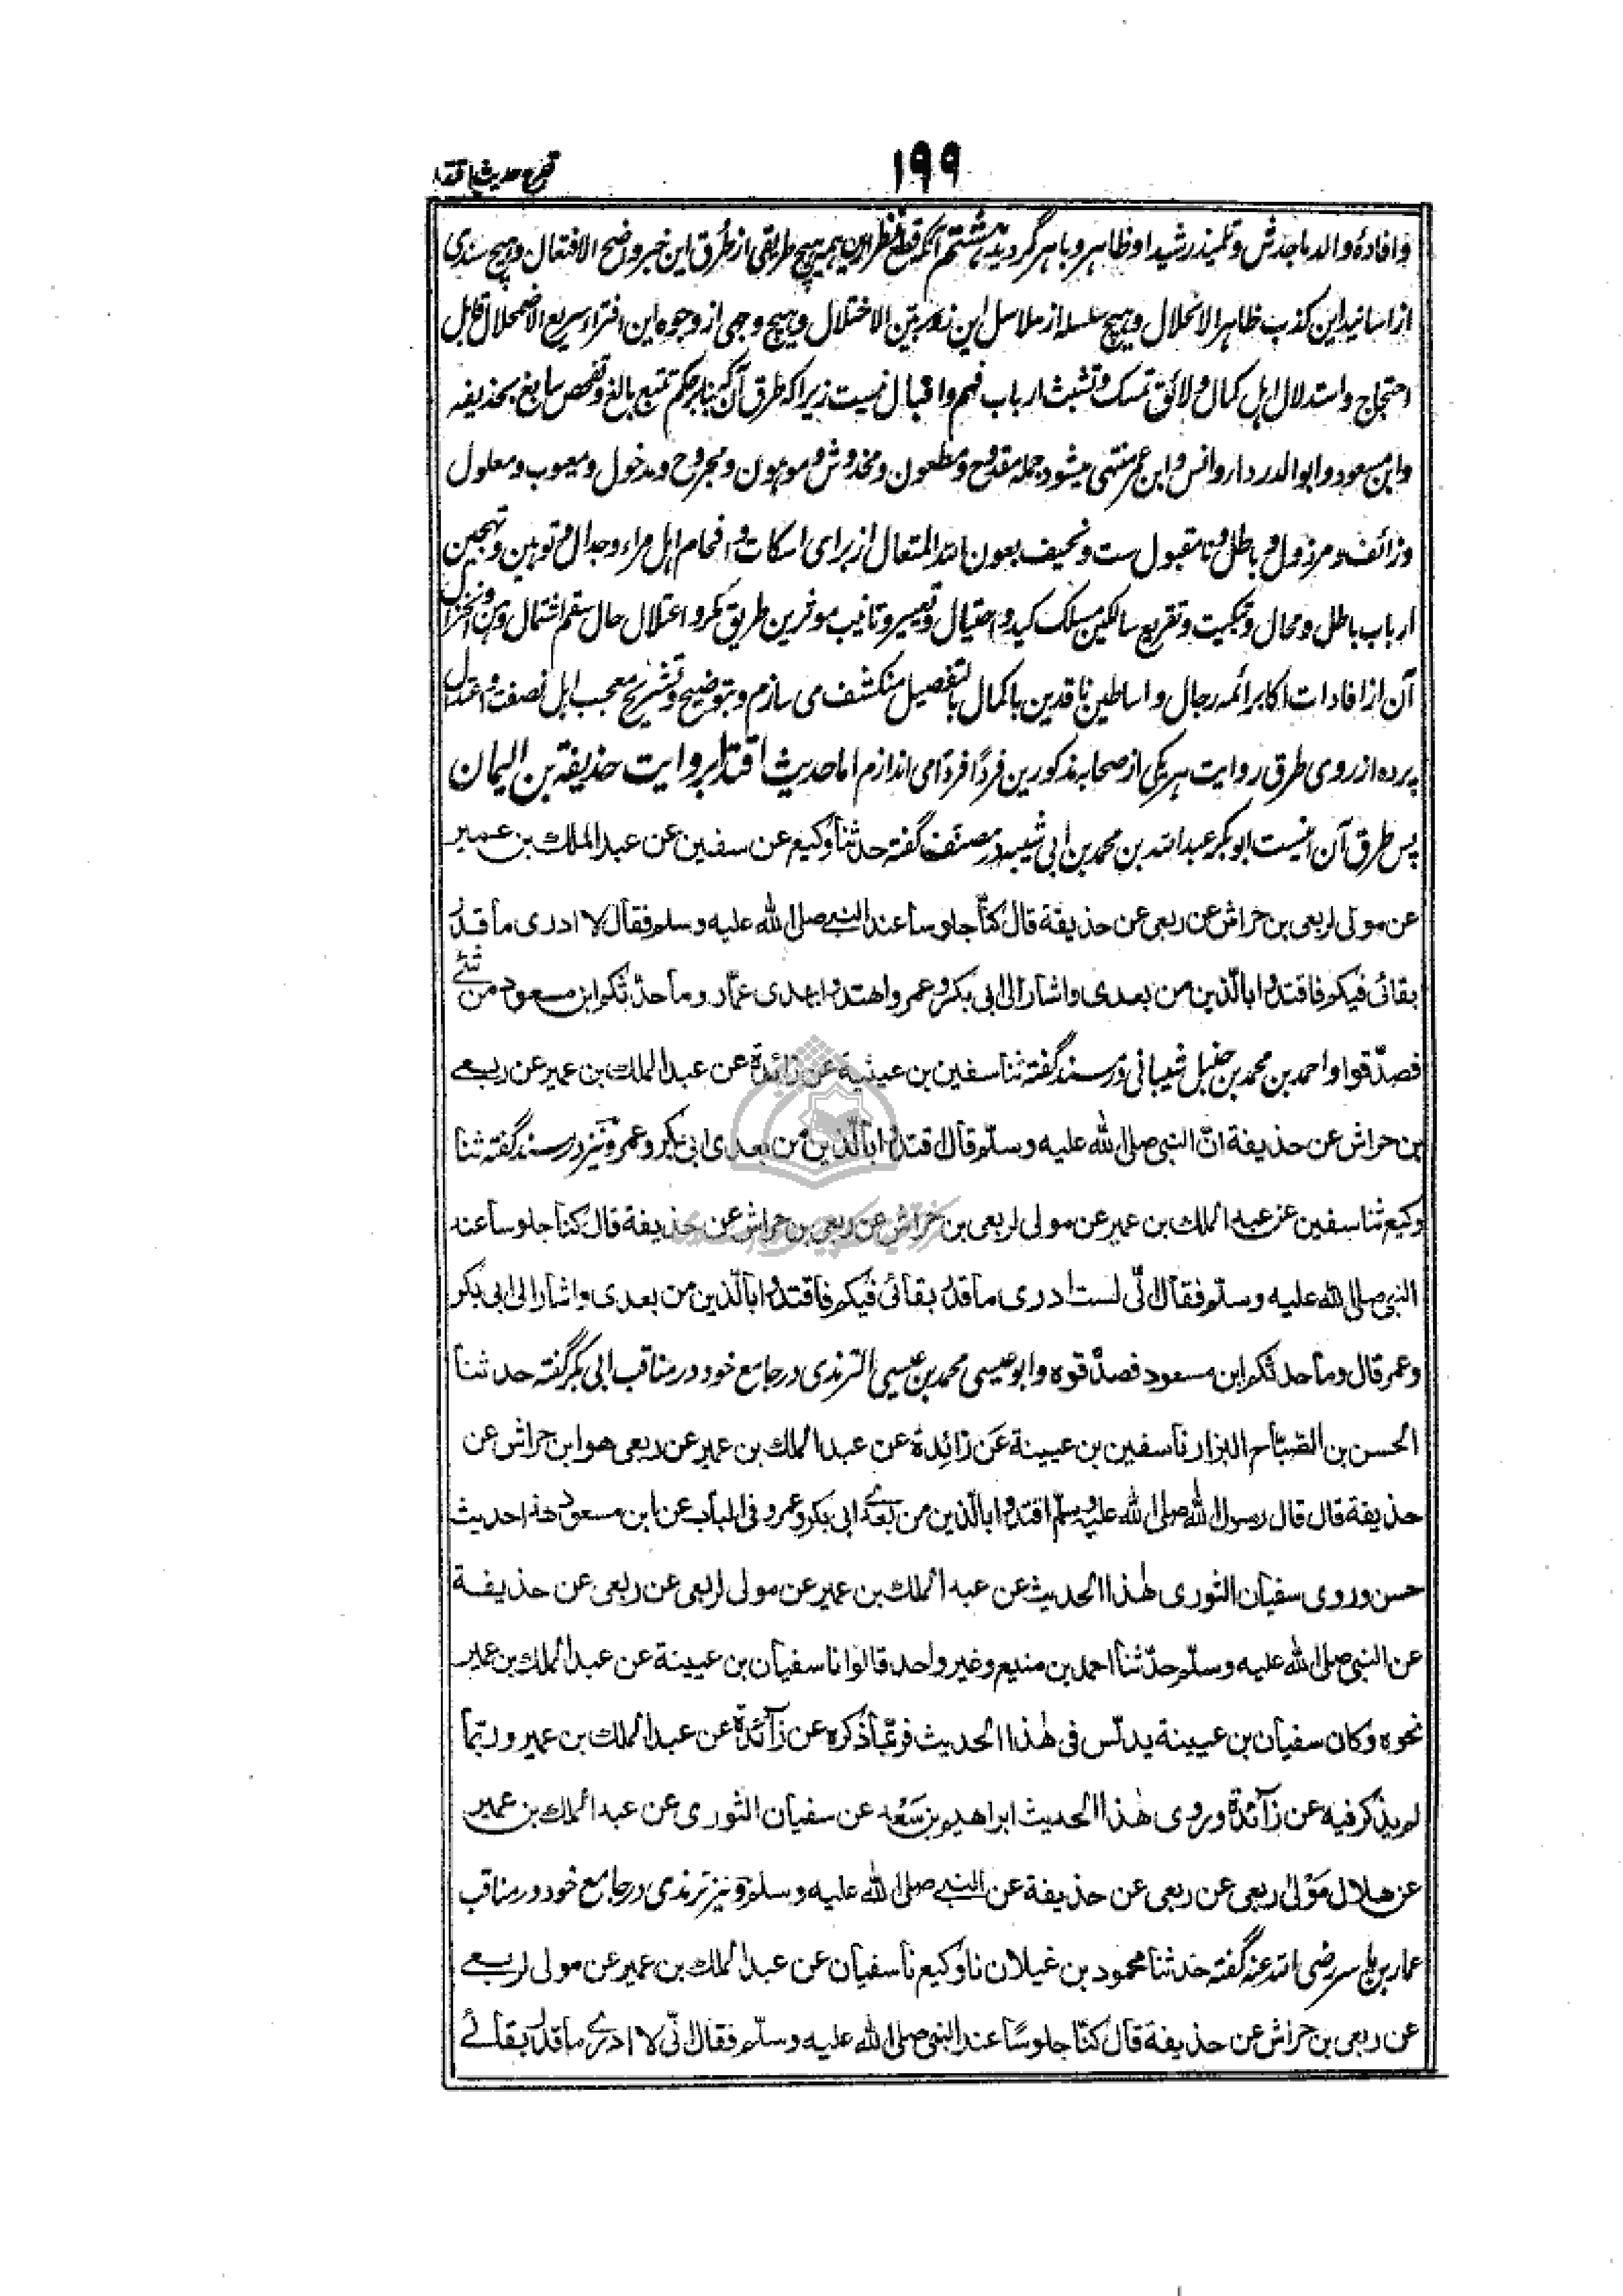 ۱۹۹
قدح حدیث اقتدا
وافادهٔ والد ماجدش و تلمیذ رشید او ظاهر و باهر گردید هشتم آنکه قطع نظر ازین همه هیچ طریقی از طُرق این خبر واضح الافتعال و هیچ سندی
از اسانید این کذب ظاهر الانحلال و هیچ سلسله از سلاسل این زور بیّن الاختلال و هیچ وجهی از وجوه این افتراء سریع الاضمحلال قابل
احتجاج و استدلال اهل کمال و لائق تمسک و تشبث ارباب فهم و اقبال نیست زیراکه طرق آن که بنابر حکم تتبع بالغ و تفحص سابغ بحذیفه
وابن مسعود و ابوالدرداء و انس و ابن عمر منتهی میشود جمله مقدوح و مطعون و مخدوش و موهون و مجروح و مدخول و معیوب و معلول
و زائف و مرذول و باطل و نامقبول ست و نحیف بعون الله المتعال از برای اسکات و افحام اهل مراء و جدال و توهین و تهجین
ارباب باطل و محال و تبکیت و تقریع سالکین مسلک کید و احتیال و تعییر و تانیب موثرین طریق مکر و اعتلال حال سقم اشتمال و وهن و انخزال
آن از افادات اکابر ائمه رجال و اساطین ناقدین باکمال بالتفصیل منکشف می سازم و بتوضیح و تشریح معجب اهل نصفت و اعتدال
پرده از روی طرق روایت هریکی از صحابه مذکورین فردًا فردًا می اندازم اما حدیث اقتدا بروایت حذیفة بن الیمان
پس طرق آن اینست ابوبکر عبدالله بن محمد بن ابی شیبه در مصنف گفته حدثنا وکیع عن سفین عن عبد الملك بن عمیر
عن مولی لربعی بن حراش عن ربعی عن حذیفة قال کنّا جلوسا عند النبی صلی الله علیه وسلم فقال لا ادری ما قدر
بقائی فیکم فاقتدوا بالّذین من بعدی واشار الی ابی بکر وعمر واهتدوا بهدی عمّار وما حدّثکم ابن مسعود من شئ
فصدّقوا و احمد بن محمد بن حنبل شیبانی در مسند گفته ثنا سفین بن عیینة عن زائدة عن عبد الملك بن عمیر عن ربعی
بن حراش عن حذیفة انّ النبی صلی الله علیه وسلّم قال اقتدوا بالّذین من بعدی ابی بکر وعمر و نیز در مسند گفته ثنا
وکیع ثنا سفین عن عبد الملك بن عمیر عن مولی لربعی بن حراش عن ربعی بن حراش عن حذیفة قال کنا جلوسا عند
النبی صلی الله علیه وسلّم فقال انّی لست ادری ما قدر بقائی فیکم فاقتدوا بالّذین من بعدی واشار الی ابی بکر
وعمر قال وما حدثکم ابن مسعود فصدّقوه و ابو عیسی محمد بن عیسی الترمذی در جامع خود در مناقب ابی بکر گفته حدثنا
الحسن بن الصبّاح البزار نا سفین بن عیینة عن زائدة عن عبد الملك بن عمیر عن ربعی هو ابن حراش عن
حذیفة قال قال رسول الله صلی الله علیه وسلّم اقتدوا بالّذین من بعدی ابی بکر وعمر وفی الباب عن ابن مسعود هذا حدیث
حسن وروی سفیان الثوری هٰذا الحدیث عن عبد الملك بن عمیر عن مولی لربعی عن ربعی عن حذیفة
عن النبی صلی الله علیه وسلّم حدّثنا احمد بن منیع وغیر واحد قالوا نا سفیان بن عیینة عن عبد الملك بن عمیر
نحوه وکان سفیان بن عیینة یدلّس فی هٰذا الحدیث فربّما ذکره عن زآئدة عن عبد الملك بن عمیر وربّما
لم یذکر فیه عن زآئدة وروی هٰذا الحدیث ابراهیم بن سَعْد عن سفیان الثوری عن عبد الملك بن عمیر
عن هلال مَوْلٰی ربعی عن ربعی عن حذیفة عن النبی صلی الله علیه وسلم و نیز ترمذی در جامع خود در مناقب
عمار بن یاسر رضی الله عنه گفته حدثنا محمود بن غیلان نا وکیع نا سفیان عن عبد الملك بن عمیر عن مولی لربعی
عن ربعی بن حراش عن حذیفة قال کنّا جلوسًا عند النبی صلی الله علیه وسلّم فقال انّی لا ادری ما قدر بقائی